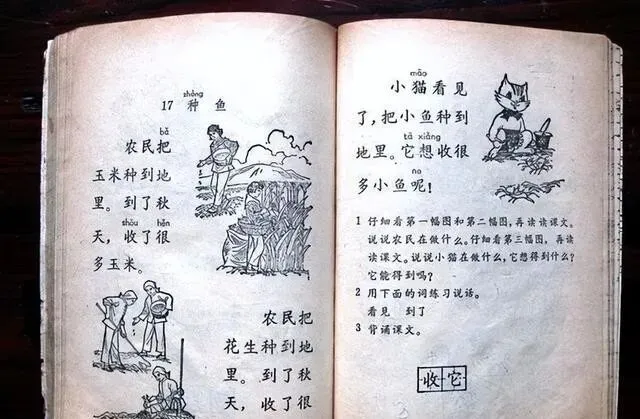 zhòng
17 种 鱼
bǎ
农民把
玉米种到地
里。到了秋
shōu hěn
天，收了很
多玉米。
农民把
花生种到地
里。到了秋
天，收了很
māo
小猫看见
了，把小鱼种到
tā xiǎng
地里。它想收很
ne
多小鱼呢！
1 仔细看第一幅图和第二幅图，再读读课文。
说说农民在做什么。仔细看第三幅图，再读
读课文。说说小猫在做什么，它想得到什么？
它能得到吗？
2 用下面的词练习说话。
看见 到了
3 背诵课文。
收它